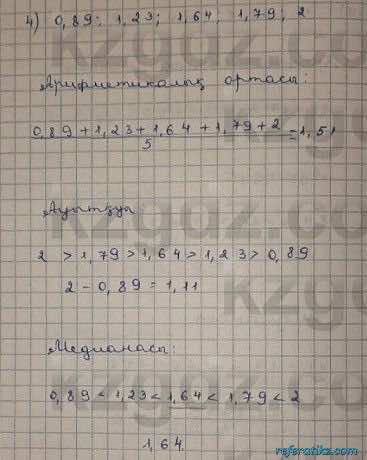 4) 0,89; 1,23; 1,64; 1,79; 2
Арифметикалық ортасы:
0,89 + 1,23 + 1,64 + 1,79 + 2 = 1,51
5
Ауытқуы
2 > 1,79 > 1,64 > 1,23 > 0,89
2 - 0,89 = 1,11
Медианасы:
0,89 < 1,23 < 1,64 < 1,79 < 2
1,64
referatikz.com